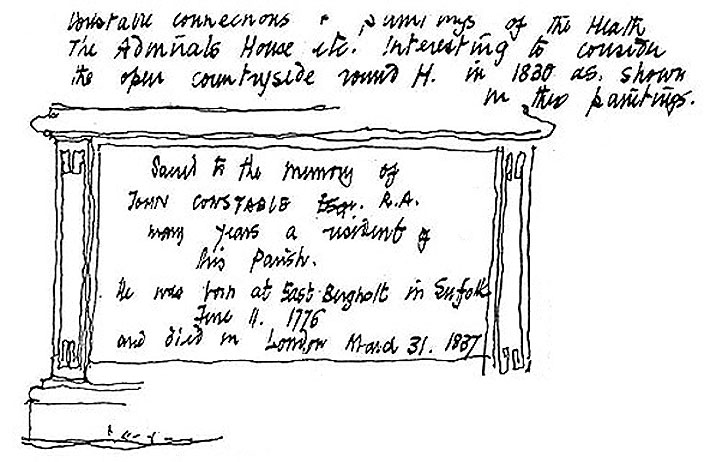 Constable connections + paintings of the Heath
The Admirals House etc. Interesting to consider
the open countryside round H. in 1830 as shown
in the paintings.
Sacred to the memory of
JOHN CONSTABLE Esqr. R.A.
many years a resident of
this Parish.
He was born at East Bergholt in Suffolk
June 11. 1776
and died in London March 31. 1837